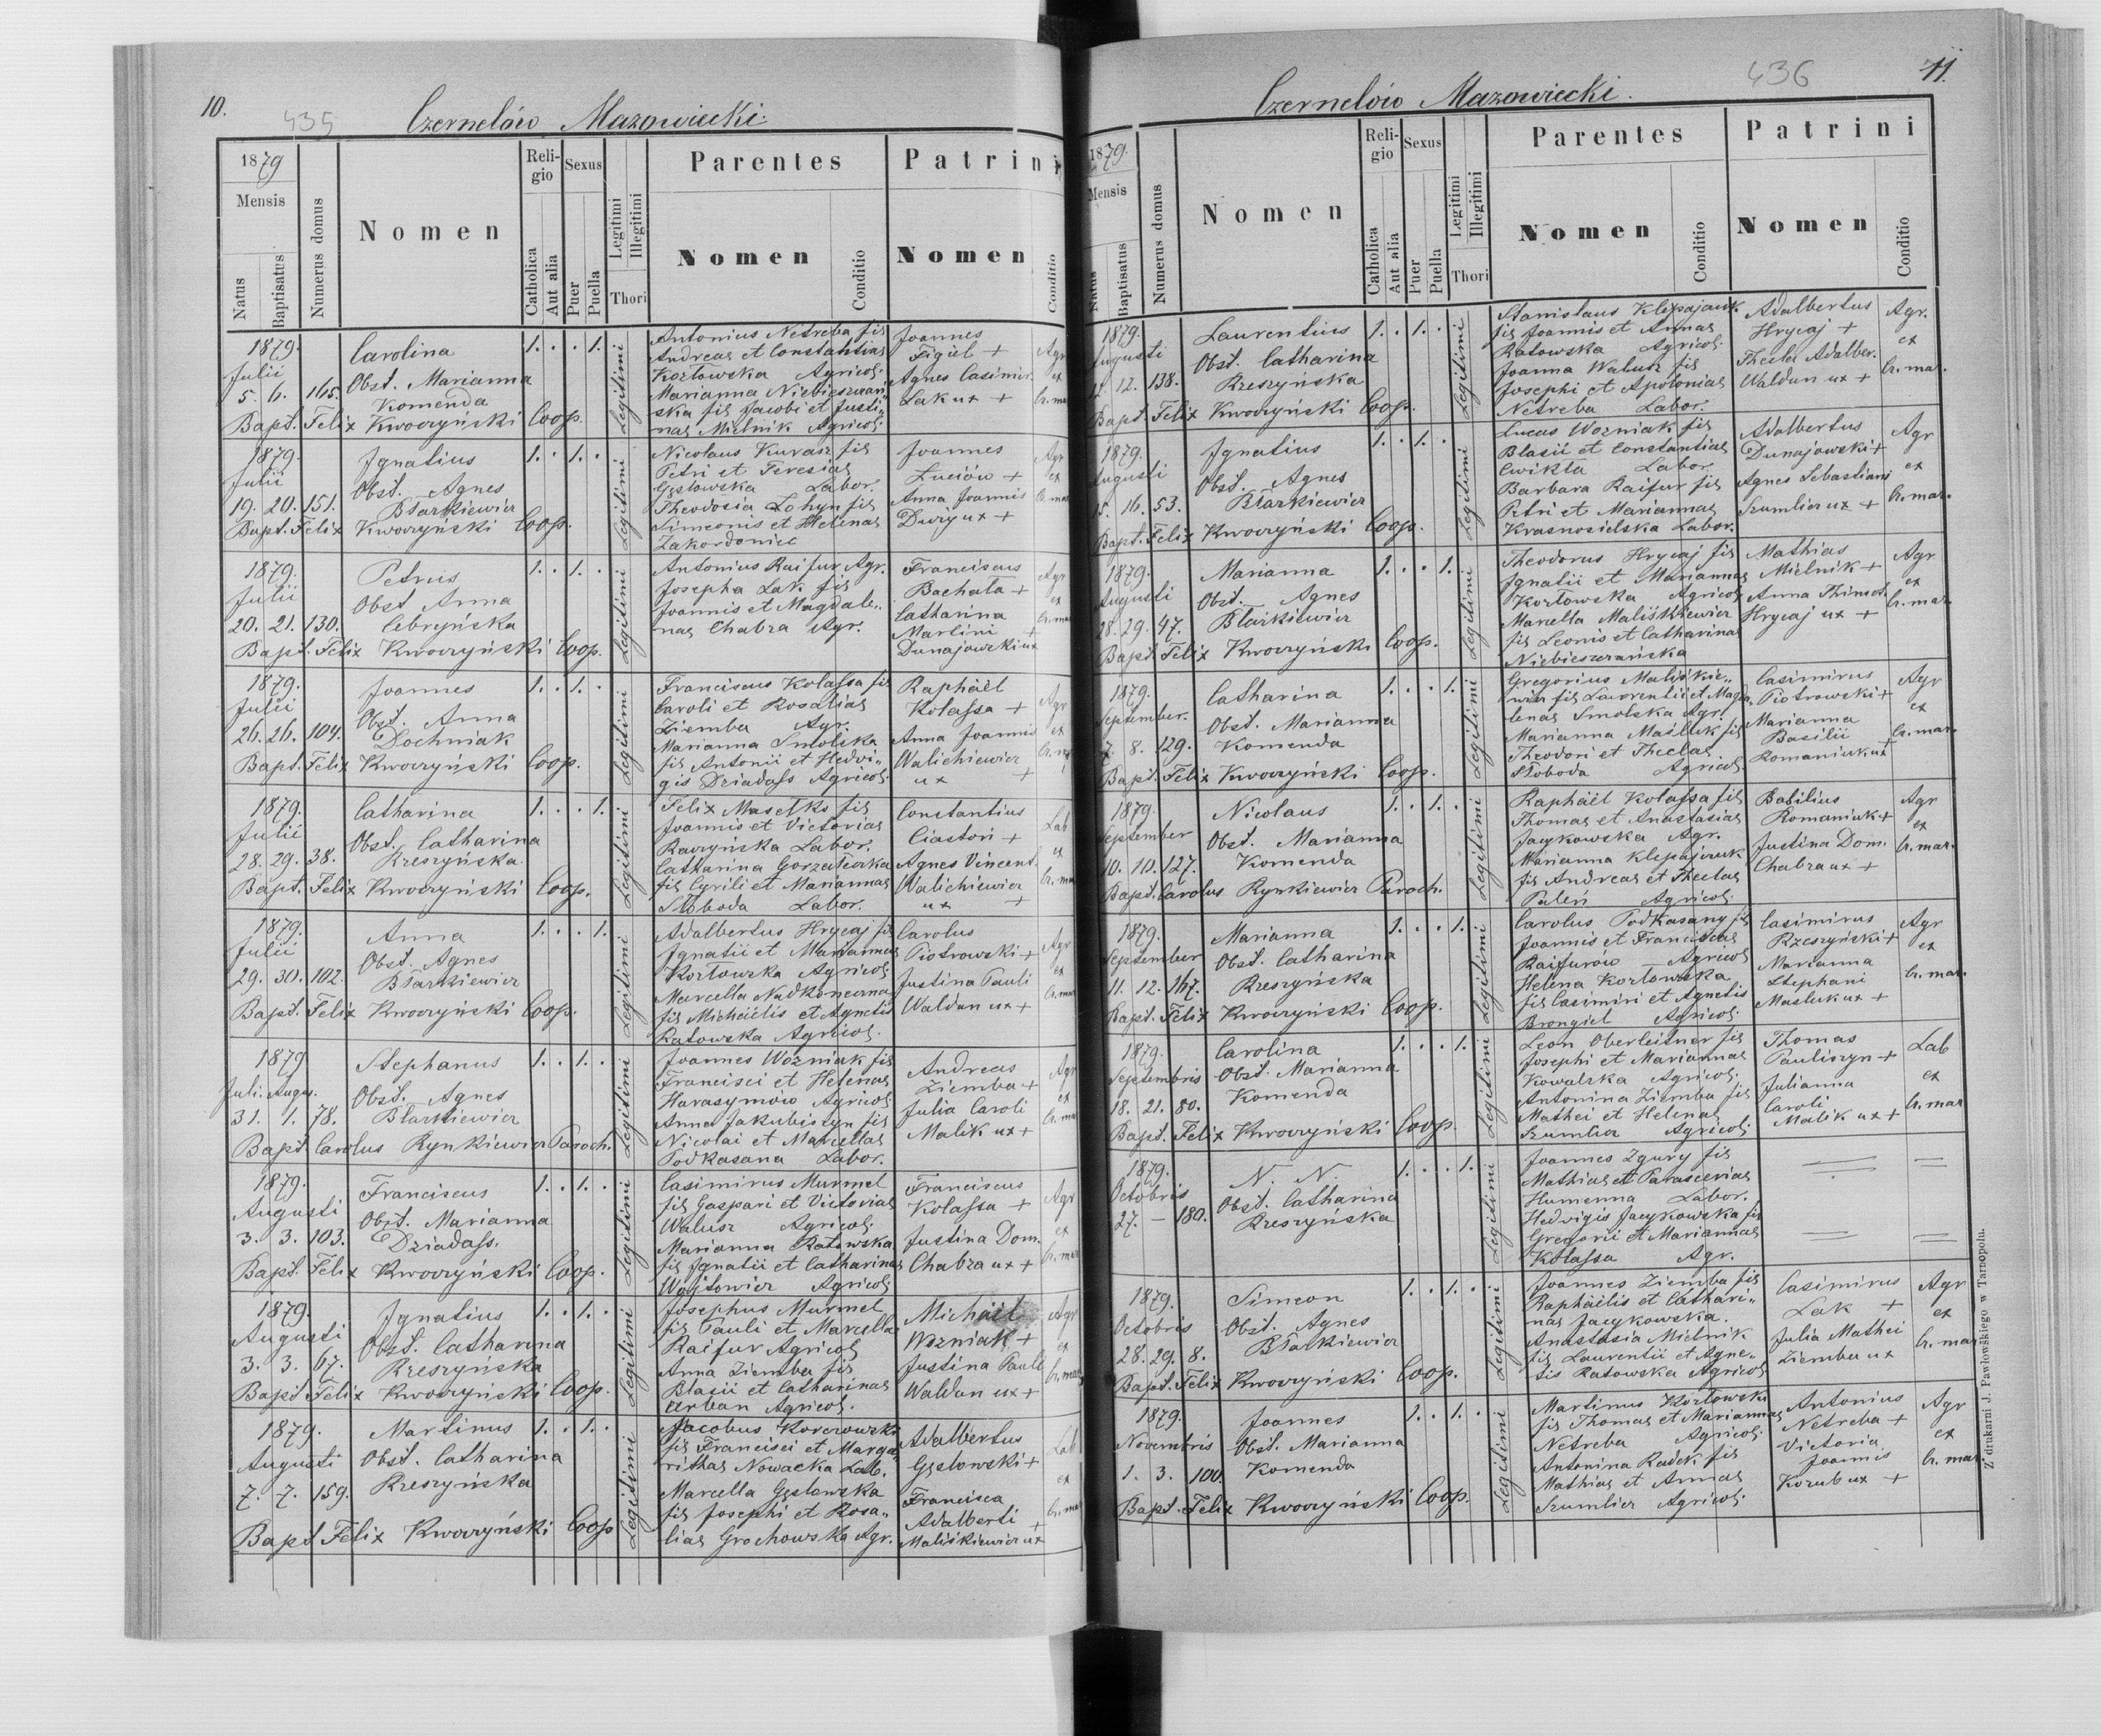 10.
435
Czernelów Mazowiecki.
1879
Mensis
Natus
Baptisatus
Numerus domus
Nomen
Religio
Catholica
Aut alia
Sexus
Puer
Puella
Legitimi
Illegitimi
Thori
Parentes
Nomen
Conditio
Patrini
Nomen
Conditio
1879.
Julii
5. 6. 165.
Carolina
Obst. Marianna
Komenda
Bapt. Felix Kwoczyński Coop.
1. . . 1.
Legitimi
Antonius Netreba fil
Andreas et Constantias
Kozłowska Agricol.
Marianna Niebieszczań
ska fil Jacobi et Justi
nas Mielnik Agricol.
Joannes
Figiel +
Agnes Casimir.
Lak ux +
Agr
ex
1879.
Julii
19. 20. 151.
Ignatius
Obst. Agnes
Błarkiewicz
Bapt. Felix Kwoczyński Coop.
1. . 1. .
Legitimi
Nicolaus Kurasz fil
Petri et Teresias
Gęstowska Labor.
Theodosia Lohyn fil
Simeonis et Helenas
Zakordoniec
Joannes
Luciów +
Anna Joannis
Duży ux +
Agr
ex
1879.
Julii
20. 21. 130.
Petrus
Obst Anna
Cebryńska
Bapt. Felix Kwoczyński Coop.
1. . 1. .
Legitimi
Antonius Raifur Agr.
Josepha Lak fil
Joannis et Magdale
nas Chabza Agr.
Franciscus
Bachała +
Catharina
Martini +
Dunajowski ux
Agr
ex
1879.
Julii
26. 26. 104.
Joannes
Obst. Anna
Dochniak
Bapt. Felix Kwoczyński Coop.
1. . 1. .
Legitimi
Franciscus Kolassa fil
Caroli et Rosalias
Ziemba Agr.
Marianna Smolska
fil Antonii et Hedvi
gis Dziadass Agricol.
Raphäel
Kolassa +
Anna Joannis
Walichiewicz
ux +
Agr
ex
1879.
Julii
28. 29. 38.
Catharina
Obst. Catharina
Rzeszyńska
Bapt. Felix Kwoczyński Coop.
1. . . 1.
Legitimi
Felix Masełko fil
Joannis et Victorias
Raczyńska Labor.
Catharina Gorzałczska
fil Cyrili et Mariannas
Słoboda Labor.
Constantius
Ciastoń +
Agnes Vincent.
Walichiewicz
ux +
Lab
ex
1879.
Julii
29. 30. 102.
Anna
Obst. Agnes
Błarkiewicz
Bapt. Felix Kwoczyński Coop.
1. . . 1.
Legitimi
Adalbertus Hrycaj fil
Ignatii et Mariannas
Kozłowska Agricol
Marcella Nadkoneczna
fil Michäelis et Agnetis
Ratowska Agricol.
Carolus
Piotrowski +
Justina Pauli
Waldun ux +
Agr
ex
1879
Juli. Augus.
31. 1. 78.
Stephanus
Obst. Agnes
Błarkiewicz
Bapt Carolus Rynkiewicz Paroch.
1. . 1. .
Legitimi
Joannes Wozniak fil
Francisci et Helenas
Harasymów Agricol
Anna Jakubiszyn fil
Nicolai et Marcellas
Podkasana Labor.
Andreas
Ziemba +
Julia Caroli
Malik ux +
Agr
ex
1879.
Augusti
3. 3. 103.
Franciscus
Obst. Marianna
Dziadass.
Bapt. Felix Kwoczyński Coop.
1. . 1. .
Legitimi
Casimirus Murmel
fil Gaspari et Victorias
Walusz Agricol.
Marianna Ratowska
fil Ignatii et Catharinas
Wojtowicz Agricol.
Franciscus
Kolassa +
Justina Dom.
Chabza ux +
Agr
ex
1879.
Augusti
3. 3. 67.
Ignatius
Obst. Catharina
Rzeszyńska
Bapt. Felix Kwoczyński Coop.
1. . 1. .
Legitimi
Josephus Murmel
fil Pauli et Marcella
Raifur Agricol
Anna Ziemba fil
Blasii et Catharinas
Urban Agricol.
Michäel
Wozniak +
Justina Pauli
Waldun ux +
Agr
ex
1879.
Augusti
7. 7. 159.
Martinus
Obst. Catharina
Rzeszyńska
Bapt Felix Kwoczyński Coop
1. . 1. .
Legitimi
Jacobus Korczowski
fil Francisci et Marga
rithas Nowacka Lab.
Marcella Gęstowska
fil Josephi et Rosa
lias Grochowska Agr.
Adalbertus
Gęstowski +
Francisca
Adalberti +
Maliśkiewicz ux
Lab
ex
11.
436
Czernelów Mazowiecki.
1879.
Mensis
Natus
Baptisatus
Numerus domus
Nomen
Religio
Catholica
Aut alia
Sexus
Puer
Puella
Legitimi
Illegitimi
Thori
Parentes
Nomen
Conditio
Patrini
Nomen
Conditio
1879.
Augusti
12. 138.
Laurentius
Obst. Catharina
Rzeszyńska
Bapt. Felix Kwoczyński Coop.
1. . 1. .
Legitimi
Stanislaus Klepajczuk
fil Joannis et Annas
Ratowska Agricol.
Joanna Walusz fil
Josephi et Apolonias
Netreba Labor.
Adalbertus
Hrycaj +
Thecla Adalber.
Waldun ux +
Agr.
ex
Gr. mar.
1879.
Augusti
15. 16. 53.
Ignatius
Obst. Agnes
Błarkiewicz
Bapt. Felix Kwoczyński Coop.
1. . 1. .
Legitimi
Lucas Wozniak fil
Blasii et Constantias
Cwikła Labor.
Barbara Raifur fil
Petri et Mariannas
Krasnosielska Labor.
Adalbertus
Dunajowski +
Agnes Sebastiani
Szumlicz ux +
Agr
ex
Gr. mar.
1879.
Augusti
28. 29. 47.
Marianna
Obst. Agnes
Błarkiewicz
Bapt. Felix Kwoczyński Coop.
1. . . 1.
Legitimi
Theodorus Hrycaj fil
Ignatii et Mariannas
Kozłowska Agricol
Marcella Maliśkiewicz
fil Leonis et Catharinas
Niebieszczańska
Mathias
Mielnik +
Anna Thimot.
Hrycaj ux +
Agr
ex
Gr. mar.
1879.
September.
7. 8. 129.
Catharina
Obst. Marianna
Komenda
Bapt. Felix Kwoczyński Coop.
1. . . 1.
Legitimi
Gregorius Maliśkie
wicz fil Laurentii et Magda
lenas Smolska Agr.
Marianna Maśluk fil
Theodori et Theclas
Słoboda Agricol.
Casimirus
Piotrowski +
Marianna
Basilii +
Romaniuk ux
Agr
ex
Gr. mar.
1879.
September
10. 10. 127.
Nicolaus
Obst. Marianna
Komenda
Bapt. Carolus Rynkiewicz Paroch.
1. . 1. .
Legitimi
Raphäel Kolassa fil
Thomas et Anastasias
Jacykowska Agr.
Marianna Klepajczuk
fil Andreas et Theclas
Paleń Agricol.
Basilius
Romaniuk +
Justina Dom.
Chabza ux +
Agr
ex
Gr. mar.
1879.
September
11. 12. 167.
Marianna
Obst. Catharina
Rzeszyńska
Bapt. Felix Kwoczyński Coop.
1. . . 1.
Legitimi
Carolus Podkasany fil
Joannis et Franciscas
Raifurów Agricol
Helena Kozłowska
fil Casimiri et Agnetis
Brongiel Agricol.
Casimirus
Rzeszyński +
Marianna
Stephani
Masluk ux +
Agr
ex
Gr. mar.
1879.
Septembris
18. 21. 80.
Carolina
Obst. Marianna
Komenda
Bapt. Felix Kwoczyński Coop.
1. . . 1.
Legitimi
Leon Oberleitner fil
Josephi et Mariannas
Kowalska Agricol.
Antonina Ziemba fil
Mathei et Helenas
Szumlicz Agricol.
Thomas
Pauliszyn +
Julianna
Caroli
Malik ux +
Lab
ex
Gr. mar
1879.
Octobris
27. – 180.
N. N.
Obst. Catharina
Rzeszyńska
1. . . 1.
Legitimi
Joannes Zgury fil
Mathias et Parascevias
Humenna Labor.
Hedvigis Jacykowska fil
Gregorii et Mariannas
Kolassa Agr.
1879.
Octobris
28. 29. 8.
Simeon
Obst. Agnes
Błarkiewicz
Bapt. Felix Kwoczyński Coop.
1. . 1. .
Legitimi
Joannes Ziemba fil
Raphäelis et Cathari
nas Jacykowska.
Anastasia Mielnik
fil Laurentii et Agne
tis Ratowska Agricol
Casimirus
Lak +
Julia Mathei
Ziemba ux
Agr
ex
Gr. mar
1879.
Novembris
1. 3. 100.
Joannes
Obst. Marianna
Komenda
Bapt. Felix Kwoczyński Coop.
1. . 1. .
Legitimi
Martinus Kozłowski
fil Thomas et Mariannas
Netreba Agricol.
Antonina Radek fil
Mathias et Annas
Szumlicz Agricol.
Antonius
Netreba +
Victoria
Joannis
Kozub ux +
Agr
ex
Gr. mar.
Z drukarni J. Pawłowskiego w Tarnopolu.